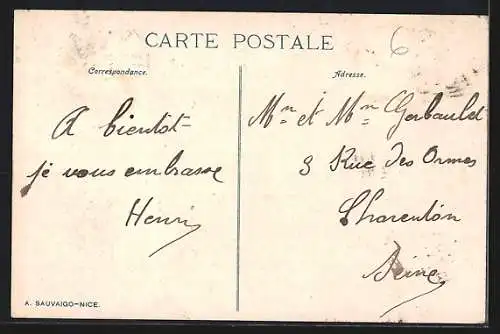 CARTE POSTALE
6
Correspondance.
Adresse.
A bientot
je vous embrasse
Henri
Mr et Mm Gerbault
3 Rue des Ormes
Charenton
Seine
A. SAUVAIGO–NICE.